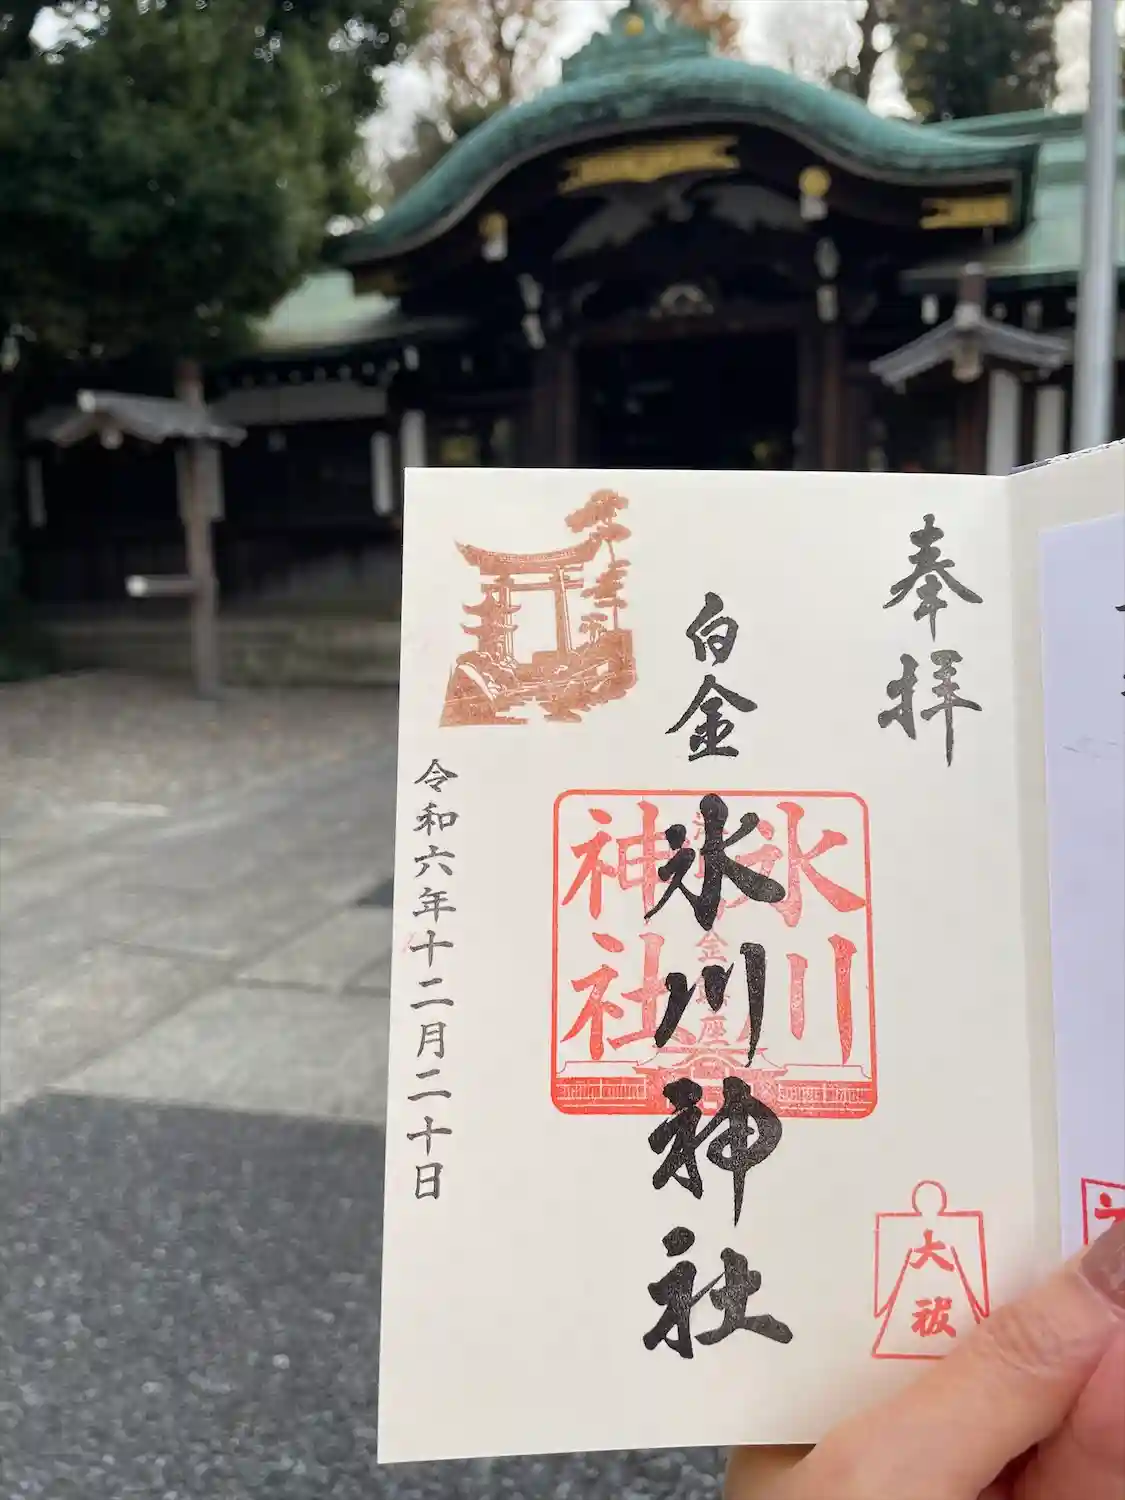 奉拝
白金
氷川神社
氷川
神社
令和六年十二月二十日
大祓